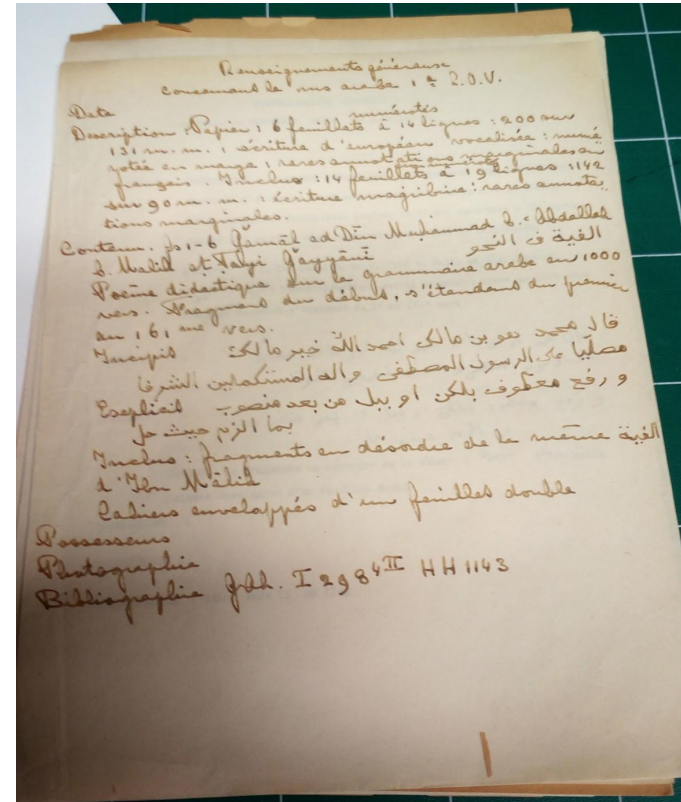 Renseignements généreuse
concernant le ms arabe 1 R.O.V.
Data
numérotés
Description : Papier : 6 feuillets à 14 lignes : 200 sur
131 m.m. : écriture d'européen vocalisée : numé
rotée en marge : rares annotations marginales en
français. Inclus : 14 feuillets à 19 lignes : 142
sur 90 m.m. : écriture magribine : rares annota
tions marginales.
Contenu. fs 1-6 Ǧamāl ad Dīn Muḥammad b. ʿAbdallah
b. Malik at Ṭa'yi Ǧayyānī الفية فى النحو
Poème didactique sur la grammaire arabe en 1000
vers. Fragment du début, s'étendant du premier
au 161 me vers.
Incipit قال محمد هو بن مالك احمد الله خير مالك
مصليا على الرسول المصطفى واله المستكملين الشرفا
Explicit و رفع معطوف بلكن او ببل من بعد منصوب
بما الزم حيث حل
Inclus : fragments en désordre de la même الفية
d'Ibn Mālik
Cahiers enveloppés d'un feuilles double
Possesseurs
Photographie
Bibliographie Gal. I 298 4 II HH 1143